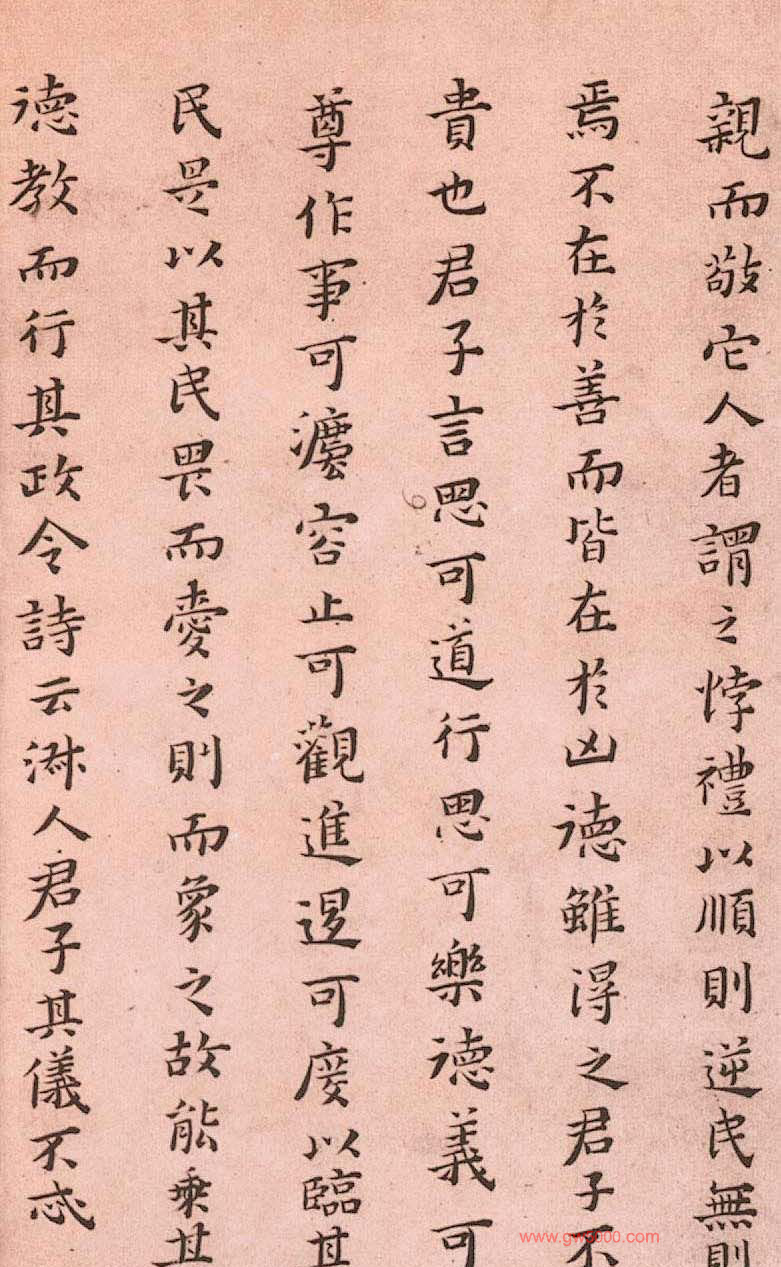 親而敬它人者謂之悖禮以順則逆民無則
焉不在於善而皆在於凶徳雖得之君子不
貴也君子言思可道行思可樂徳義可
尊作事可灋容止可觀進退可度以臨其
民是以其民畏而愛之則而象之故能乗其
徳教而行其政令詩云淑人君子其儀不忒